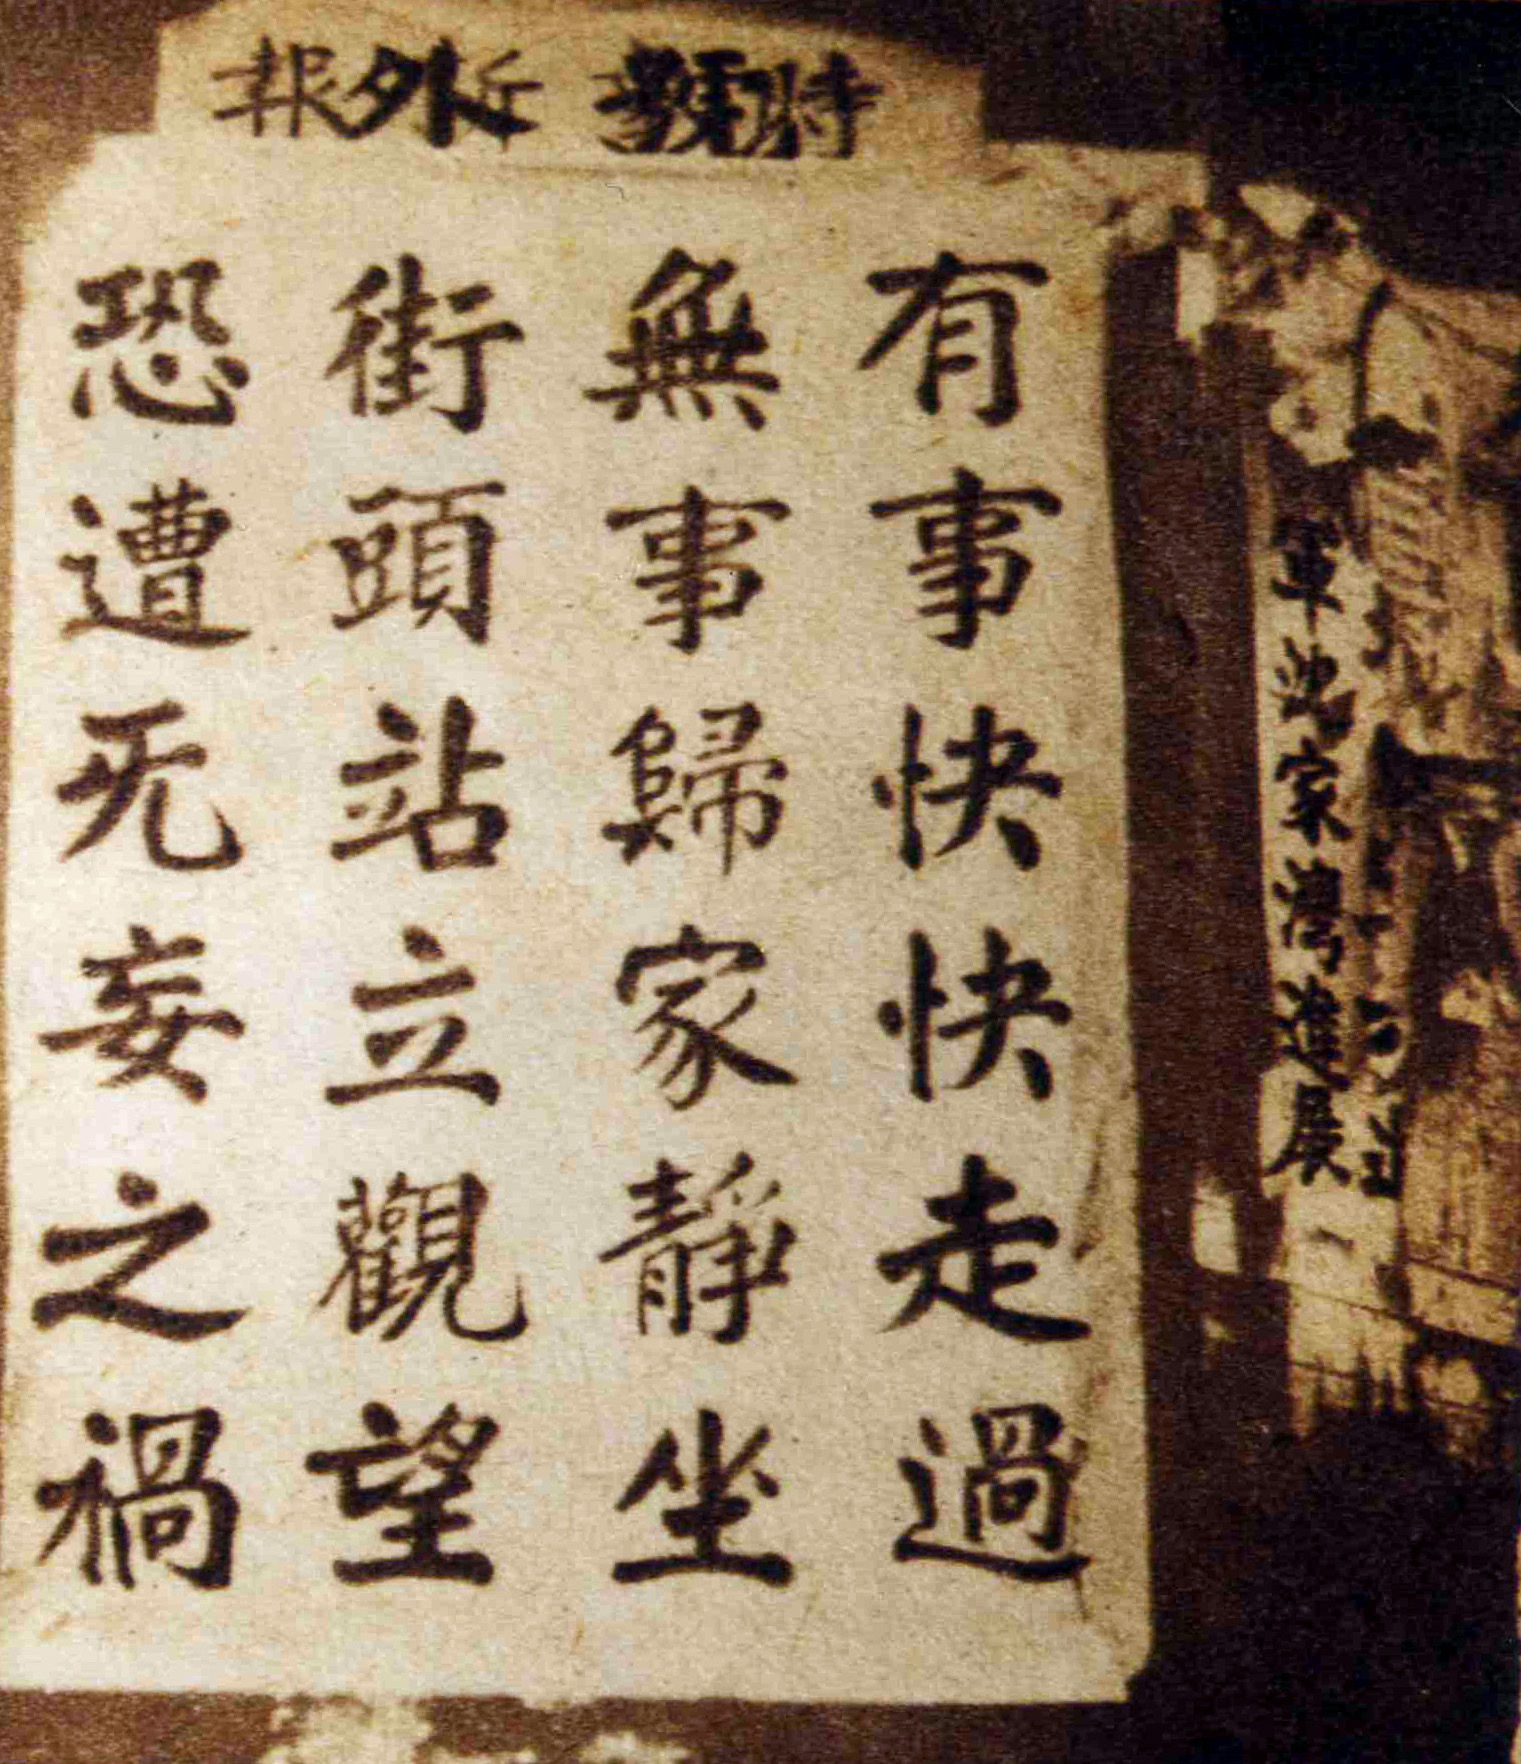 時事新報
號外
有事快快走過
無事歸家靜坐
街頭站立觀望
恐遭旡妄之禍
軍沈家灣進展